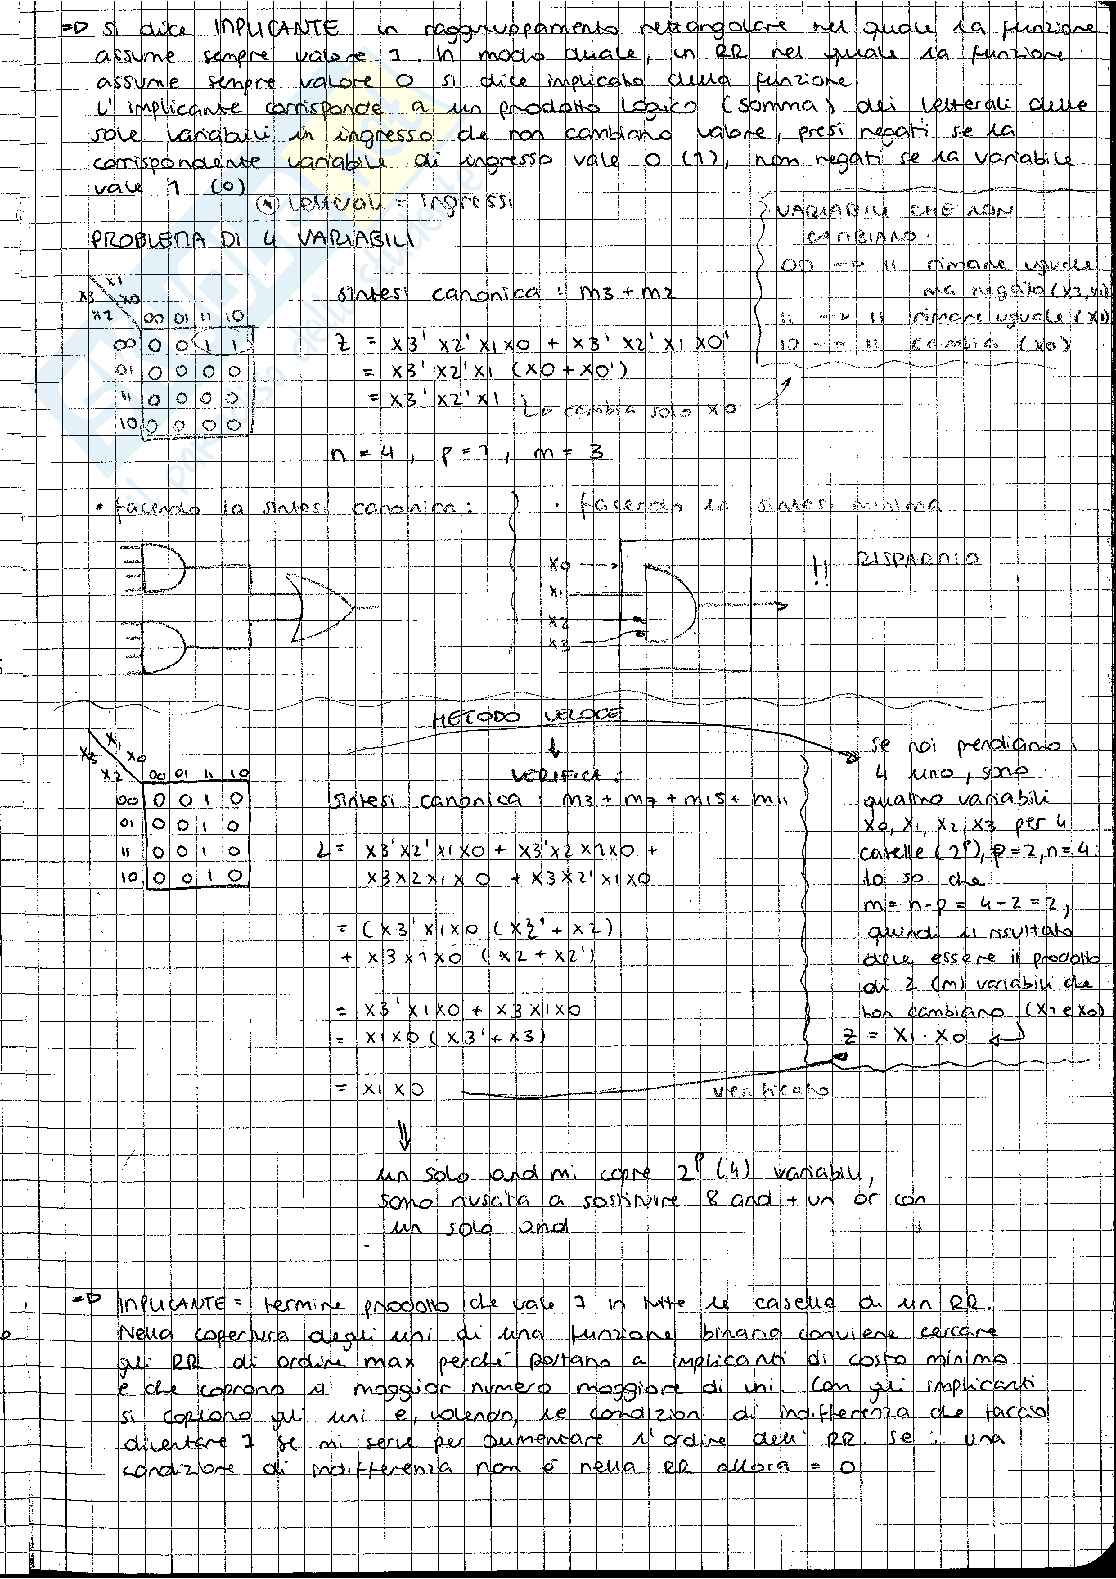 =D Si dice INPLICANTE un raggruppamento rettangolare nel quale la funzione
assume sempre valore 1. In modo duale, un RR nel quale la funzione
assume sempre valore 0 si dice implicato della funzione.
L'implicante corrisponde a un prodotto logico (somma) dei letterali delle
sole variabili in ingresso che non cambiano valore, presi negati se la
corrispondente variabile di ingresso vale 0 (1), non negati se la variabile
vale 1 (0)
letterali = ingressi
PROBLEMA DI 4 VARIABILI
VARIABILI CHE NON
CAMBIANO:
00 --> 11 rimane uguale
ma negato (x3, x2)
11 --> 11 rimane uguale (x1)
10 --> 11 cambia (x0)
x1
x3 x0
x2 00 01 11 10
00 0 0 1 1
01 0 0 0 0
11 0 0 0 0
10 0 0 0 0
sintesi canonica : m3 + m2
Z = x3' x2' x1 x0 + x3' x2' x1 x0'
= x3' x2' x1 (x0 + x0')
= x3' x2' x1 Lo cambia solo x0
n = 4, p = 1, m = 3
• facendo la sintesi canonica :
• facendo la sintesi minima
x0
x1
x2
x3
!! RISPARMIO
METODO VELOCE
VERIFICA :
x1
x3 x0
x2 00 01 11 10
00 0 0 1 0
01 0 0 1 0
11 0 0 1 0
10 0 0 1 0
sintesi canonica : m3 + m7 + m15 + m11
Z = x3' x2' x1 x0 + x3' x2 x1 x0 +
x3 x2 x1 x0 + x3 x2' x1 x0
= (x3' x1 x0 (x2' + x2)
+ x3 x1 x0 (x2 + x2')
= x3' x1 x0 + x3 x1 x0
= x1 x0 (x3' + x3)
= x1 x0
verificato
se noi prendiamo
4 uno, sono
quattro variabili
x0, x1, x2, x3 per 4
caselle (2^p), p=2, n=4
io so che
m = n-p = 4-2 = 2,
quindi il risultato
deve essere il prodotto
di 2 (m) variabili che
non cambiano (x1 e x0)
Z = x1 · x0
un solo and mi copre 2^p (4) variabili,
sono riuscita a sostituire 8 and + un or con
un solo and
=D INPLICANTE = termine prodotto che vale 1 in tutte le caselle di un RR.
Nella copertura degli uni di una funzione binaria conviene cercare
gli RR di ordine max perché portano a implicanti di costo minimo
e che coprono il maggior numero maggiore di uni. Con gli implicanti
si coprono gli uni e, volendo, le condizioni di indifferenza che faccio
diventare 1 se mi serve per aumentare l'ordine dell' RR. se una
condizione di indifferenza non è nella RR allora = 0